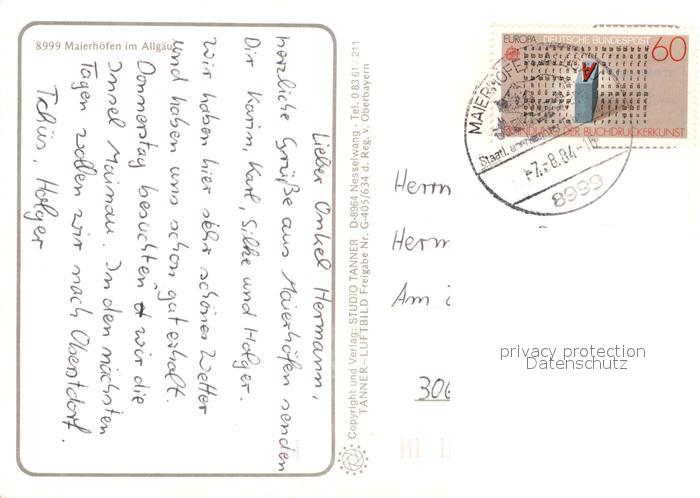 8999 Maierhöfen im Allgäu
Lieber Onkel Hermann,
herzliche Grüße aus Maierhöfen senden
Dir Karin, Karl, Silke und Holger.
Wir haben hier sehr schönes Wetter
und haben uns schon gut erholt.
Donnerstag besuchten wir die
Insel Mainau. In den nächsten
Tagen wollen wir nach Oberstdorf.
Tschüs, Holger
Copyright und Verlag: STUDIO TANNER D-8964 Nesselwang · Tel. 0 83 61 / 211
TANNER-LUFTBILD Freigabe Nr. G-405/634 d. Reg. v. Oberbayern
EUROPA DEUTSCHE BUNDESPOST 60
A
ERFINDUNG DER BUCHDRUCKERKUNST
MAIERHÖFE
Staatl. anerkannter
-7.-8.84-1
8999
Herrn
Herm
Am
306
privacy protection
Datenschutz